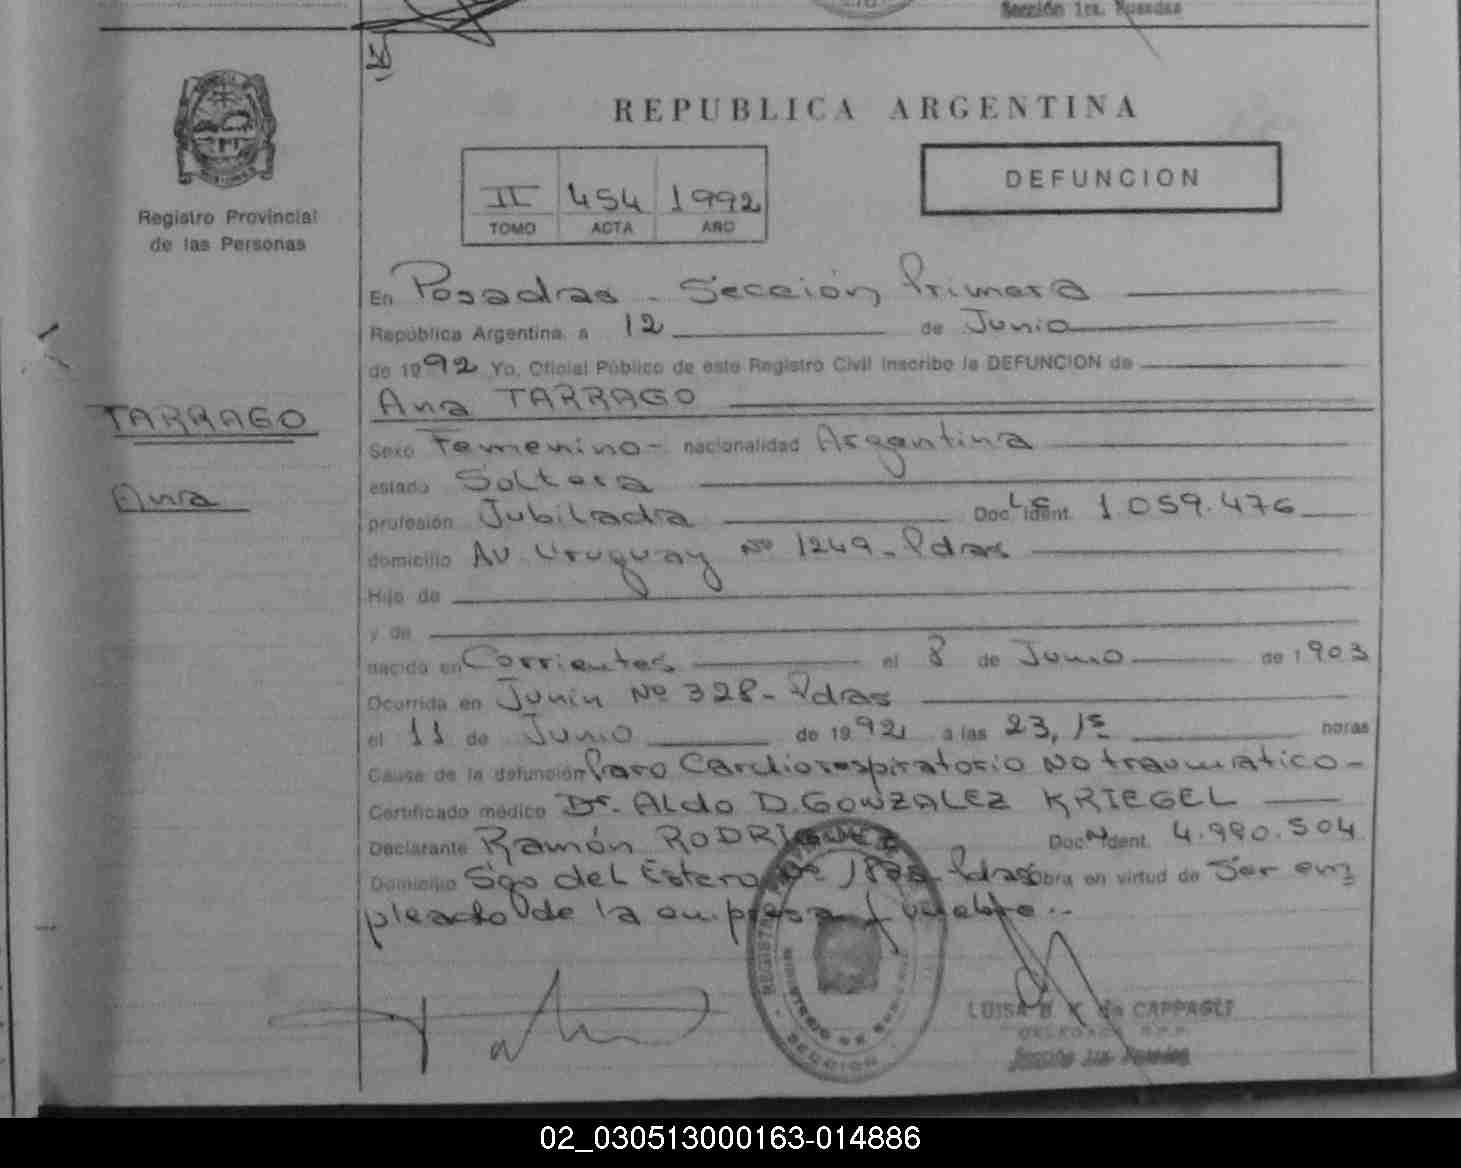 Sección 1ra. Posadas
REPUBLICA ARGENTINA
DEFUNCION
II 454 1992
TOMO ACTA AÑO
Registro Provincial
de las Personas
En Posadas - Sección Primera
República Argentina a 12 de Junio
de 1992 Yo, Oficial Público de este Registro Civil inscribo la DEFUNCION de
TARRAGO
Ana
Ana TARRAGO
Sexo Femenino - nacionalidad Argentina
estado Soltera
profesión Jubilada Doc. Ident. LC 1.059.476
domicilio Av. Uruguay Nº 1249 - Pdas
Hijo de
y de
nacido en Corrientes el 8 de Junio de 1903
Ocurrida en Junín Nº 328 - Pdas
el 11 de Junio de 1992 a las 23,15 horas
Causa de la defunción Paro Cardiorespiratorio No traumático -
Certificado médico Dr. Aldo D. GONZALEZ KRIEGEL
Declarante Ramón RODRIGUEZ Doc. Ident. 4.990.504
Domicilio Sgo del Estero Nº Pdas Obra en virtud de Ser em
pleado de la empresa fúnebre..
LUISA de CAPPAGLI
DELEGADA R.P.P.
Sección 1ra. Posadas
SECCION
02_030513000163-014886